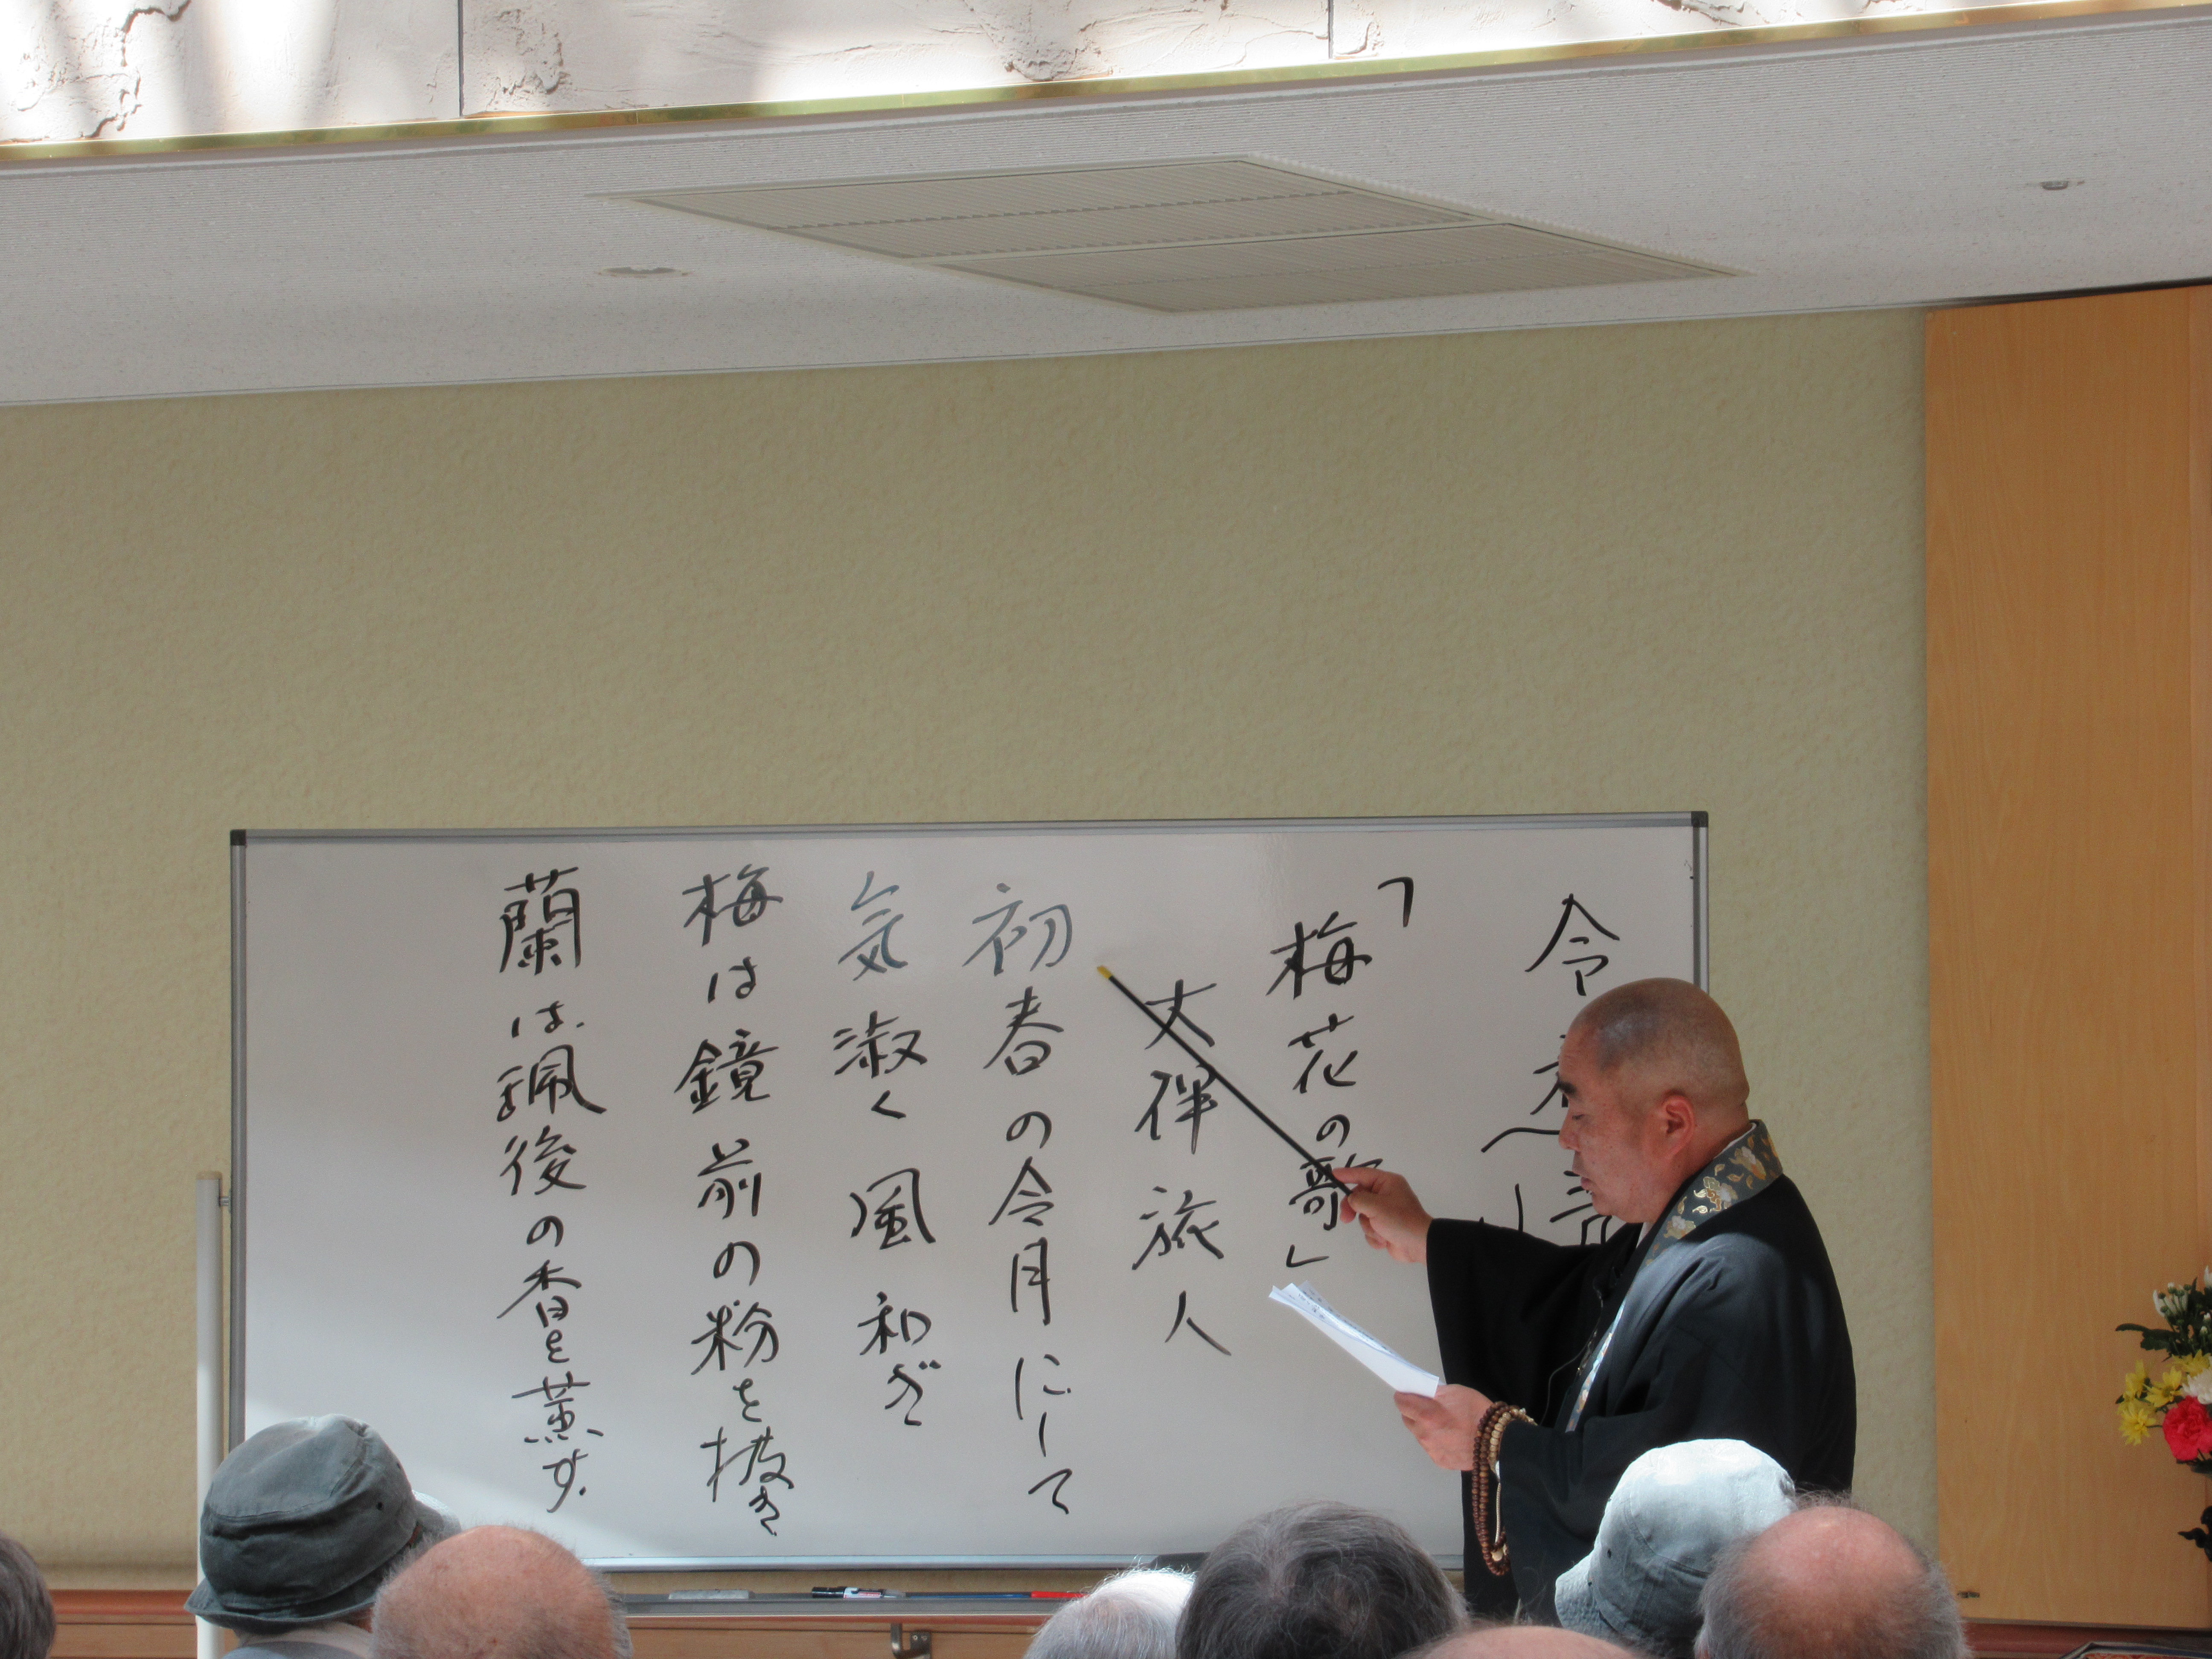 令
「梅花の歌」
大伴旅人
初春の令月にして
気淑く風和ぎ
梅は鏡前の粉を披き
蘭は珮後の香を薫す